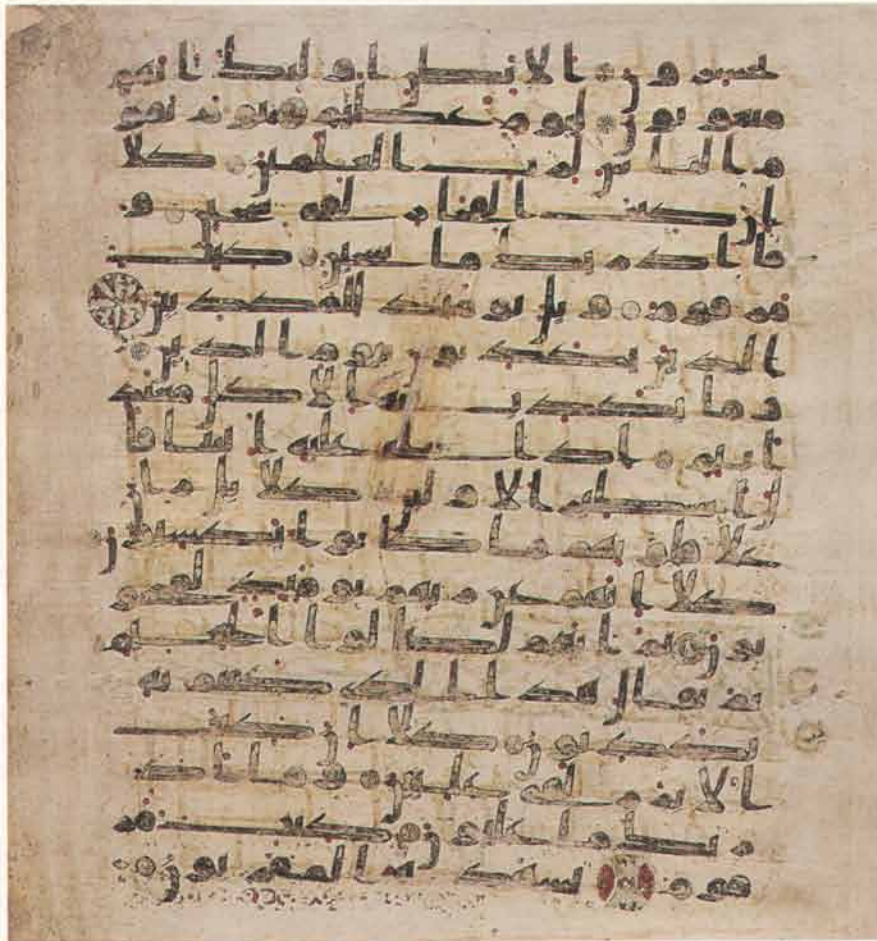 يخسرون الا يظن اولئك انهم
مبعوثون ليوم عظيم يوم يقوم
الناس لرب العلمين كلا
ان كتب الفجار لفى سجين و
ما ادريك ما سجين كتب
مرقوم ويل يومئذ للمكذبين
الذين يكذبون بيوم الدين
وما يكذب به الا كل معتد
اثيم اذا تتلى عليه ايتنا قا
ل اسطير الاولين كلا بل ران
على قلوبهم ما كانوا يكسبون
كلا انهم عن ربهم يومئذ لمحجو
بون ثم انهم لصالوا الجحيم
ثم يقال هذا الذى كنتم به
تكذبون كلا ان كتب
الابرار لفى عليين وما ادر
يك ما عليون كتب مر
قوم يشهده المقربون